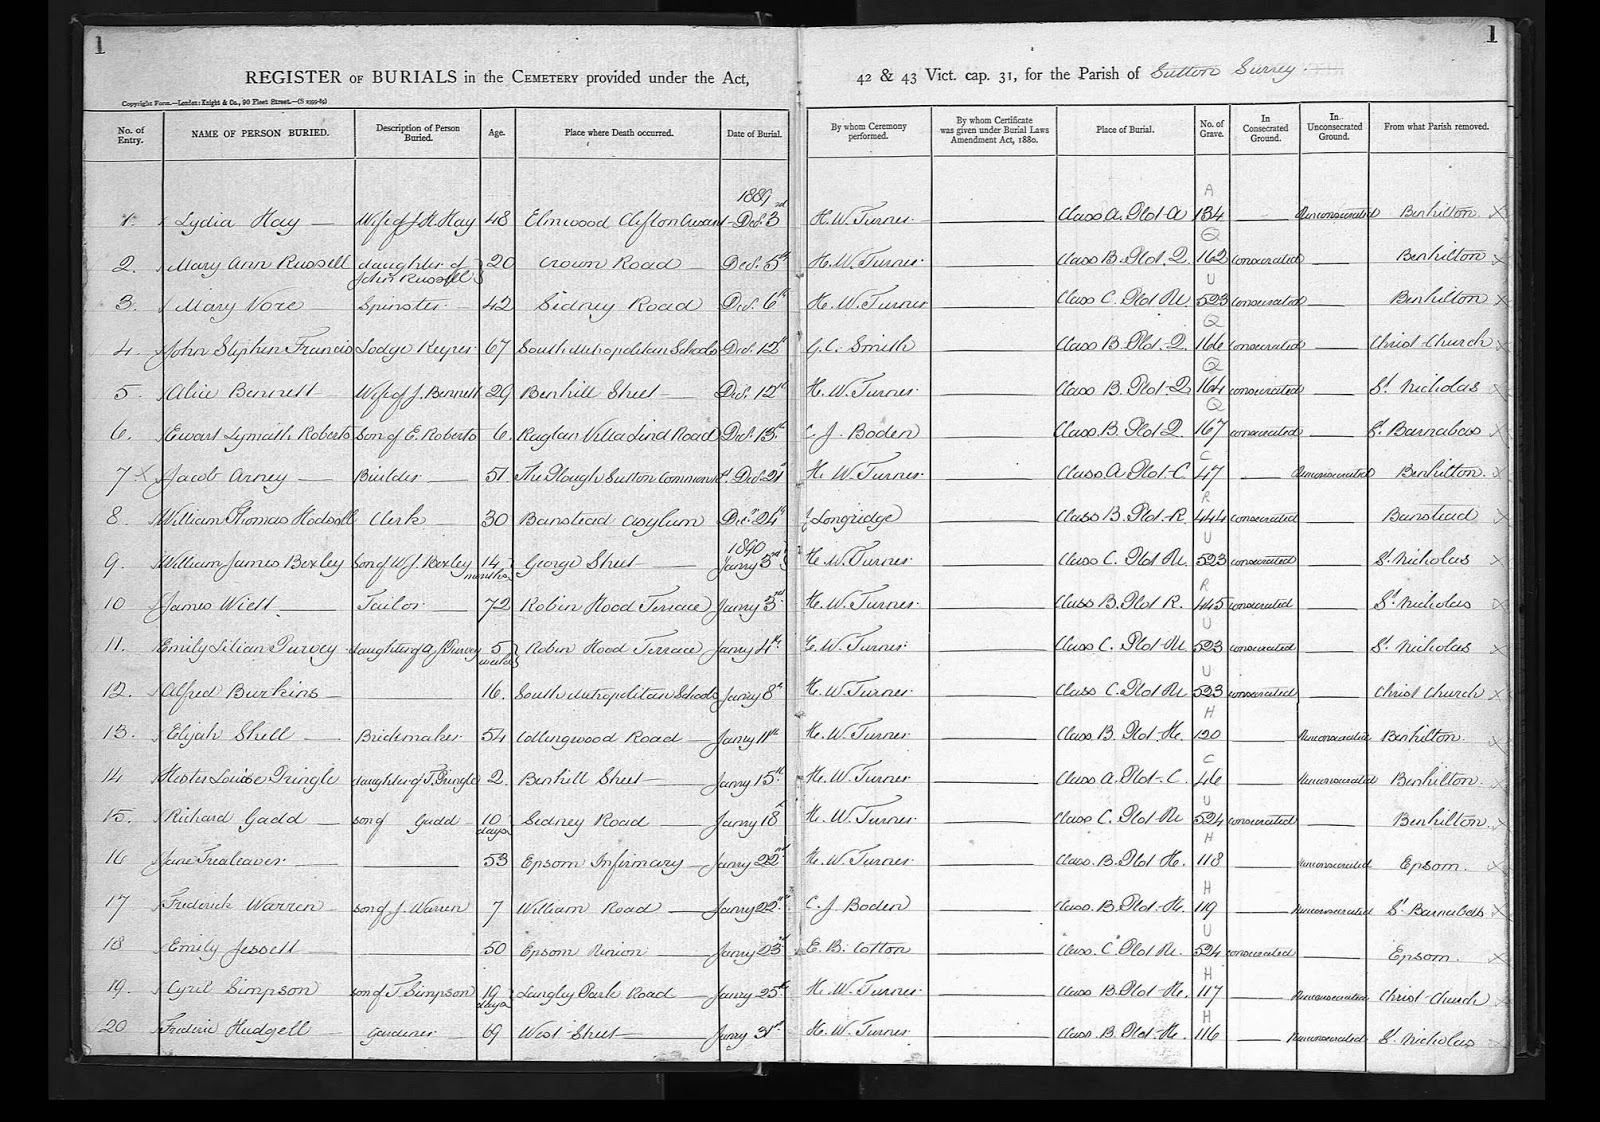 1 1
REGISTER OF BURIALS in the CEMETERY provided under the Act, 42 & 43 Vict. cap. 31, for the Parish of Sutton Surrey.
Copyright Form.—London: Knight & Co., 90 Fleet Street.—(S 2399-89)
No. of Entry. NAME OF PERSON BURIED. Description of Person Buried. Age. Place where Death occurred. Date of Burial. By whom Ceremony performed. By whom Certificate was given under Burial Laws Amendment Act, 1880. Place of Burial. No. of Grave. In Consecrated Ground. In Unconsecrated Ground. From what Parish removed.
1889 A
1. Lydia Hay Wife of J. H. Hay 48 Elmwood Clifton Decr. 3rd H. W. Turner Class A. Plot A 134 Unconsecrated Benhilton X
Q
2. Mary Ann Russell daughter of John Russell 20 Crown Road Decr. 5th H. W. Turner Class B. Plot Q 162 consecrated Benhilton X
U
3. Mary Vore Spinster 42 Sidney Road Decr. 6th H. W. Turner Class C. Plot U. 523 consecrated Benhilton X
Q
4. John Stephen Francis Lodge Keeper 67 South Metropolitan Schools Decr. 12th G. C. Smith Class B. Plot Q. 166 consecrated Christ Church X
Q
5. Alice Bennett Wife of J. Bennett 29 Benhill Street Decr. 12th H. W. Turner Class B. Plot Q 164 consecrated St. Nicholas X
Q
6. Ewart Roberts Son of E. Roberts 6. Raglan Villa Lind Road Decr. 13th C. J. Boden Class B. Plot Q 167 consecrated St. Barnabas X
C
7 X Jacob Arney Builder 51. The Plough Sutton Common Decr. 21st H. W. Turner Class A. Plot C. 47 Unconsecrated Benhilton. X
R
8. William Thomas Hodsoll Clerk 30 Banstead Asylum Decr. 24th Longridge Class B. Plot R. 444 consecrated Banstead X
1890 U
9. William James Bexley son of W. J. Bexley 14 months George Street Janry 3rd H. W. Turner Class C. Plot U. 523 consecrated St. Nicholas X
R
10 James Wiett Tailor 72 Robin Hood Terrace Janry 3rd H. W. Turner Class B. Plot R. 445 consecrated St. Nicholas X
U
11. Emily Lilian Purvey daughter of A. J. Purvey 5 weeks Robin Hood Terrace Janry 4th E. W. Turner Class C. Plot U 523 consecrated St. Nicholas X
U
12. Alfred Burkins 16. South Metropolitan Schools Janry 8th H. W. Turner Class C. Plot U 523 consecrated Christ Church X
H
13. Elijah Shell Brickmaker 54 Collingwood Road Janry 11th H. W. Turner Class B. Plot H. 120 Unconsecrated Benhilton. X
C
14 Hester Louise Pringle daughter of T. Pringle 2. Benhill Street Janry 15th H. W. Turner Class A. Plot C. 46 Unconsecrated Benhilton. X
U
15. Richard Gadd son of Gadd 10 days Sidney Road Janry 18 H. W. Turner Class C. Plot U 524 consecrated Benhilton X
H
16 Jane Trealeaver 53 Epsom Infirmary Janry 22nd H. W. Turner Class. B. Plot H. 118 Unconsecrated Epsom. X
H
17 Frederick Warren son of J. Warren 7 William Road Janry 22nd C. J. Boden Class. B. Plot H. 119 Unconsecrated St. Barnabas X
U
18 Emily Jessett 50 Epsom Union Janry 23rd E. B. Cotton Class. C. Plot U. 524 consecrated Epsom. X
H
19. Cyril Simpson son of T. Simpson 19 days Langley Park Road Janry 25th H. W. Turner Class B. Plot H. 117 Unconsecrated Christ Church X
H
20 Frederic Hudgell Gardener 69 West Street Janry 31st H. W. Turner Class B. Plot H. 116 Unconsecrated St. Nicholas X